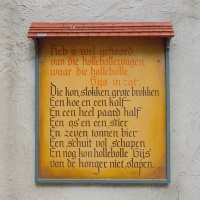 Heb je wel gehoord
van die hollebollewagen
waar die hollebolle
Gijs in zat
Die kon slokken grote brokken
Een koe en een kalf
En een heel paard half
Een os en een stier
En zeven tonnen bier
Een schuit vol schapen
En nog kon hollebolle Gijs
van de honger niet slapen.